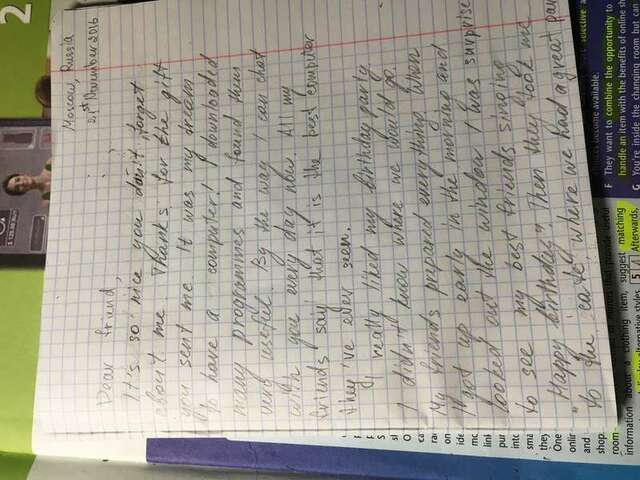 2
Moscow, Russia
21st November 2016
Dear friend,
It's so nice you don't forget
about me. Thanks for the gift
you sent me. It was my dream
to have a computer! I downloaded
many programmes and found them
very useful. By the way I can chat
with you every day now. All my
friends say that it is the best computer
they've ever seen.
I really liked my birthday party.
I didn't know where we would go.
My friends prepared everything. When
I got up early in the morning and
looked out the window I was surprise
to see my best friends singing
"Happy birthday". Then they took me
to the cafe, where we had a great par
information about a clothing item, suggest matching
Afterwards,
selective a
choices become available.
F They want to combine opportunity to
handle an item with the benefits of online sh
G You're inside the changing room but can